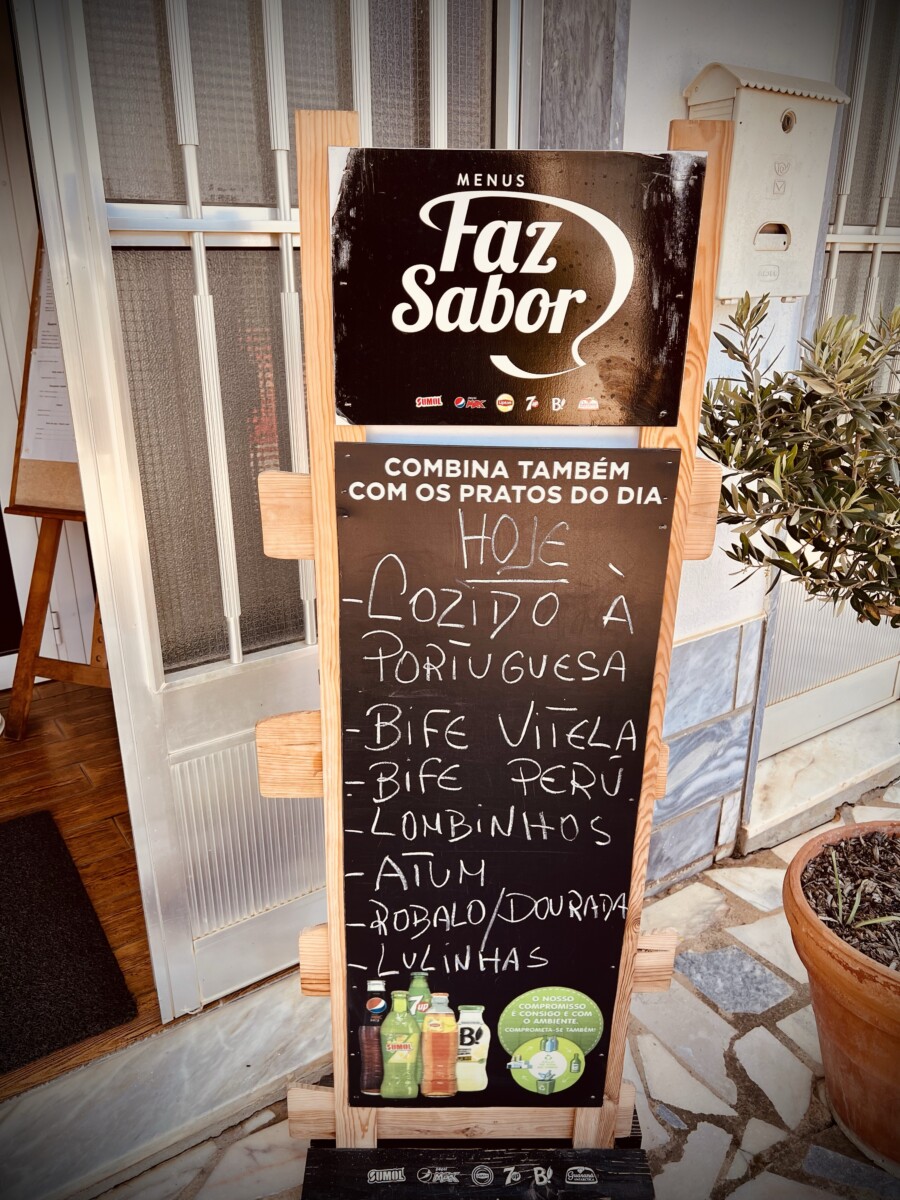 MENUS
Faz
Sabor
SUMOL MAX Lipton 7 B!
COMBINA TAMBÉM
COM OS PRATOS DO DIA
HOJE
- COZIDO À
PORTUGUESA
- BIFE VITELA
- BIFE PERÚ
- LOMBINHOS
- ATUM
- ROBALO/DOURADA
- LULINHAS
7up
SUMOL
B!
O NOSSO
COMPROMISSO
É CONSIGO E COM
O AMBIENTE.
COMPROMETA-SE TAMBÉM!
SUMOL MAX 7 B!